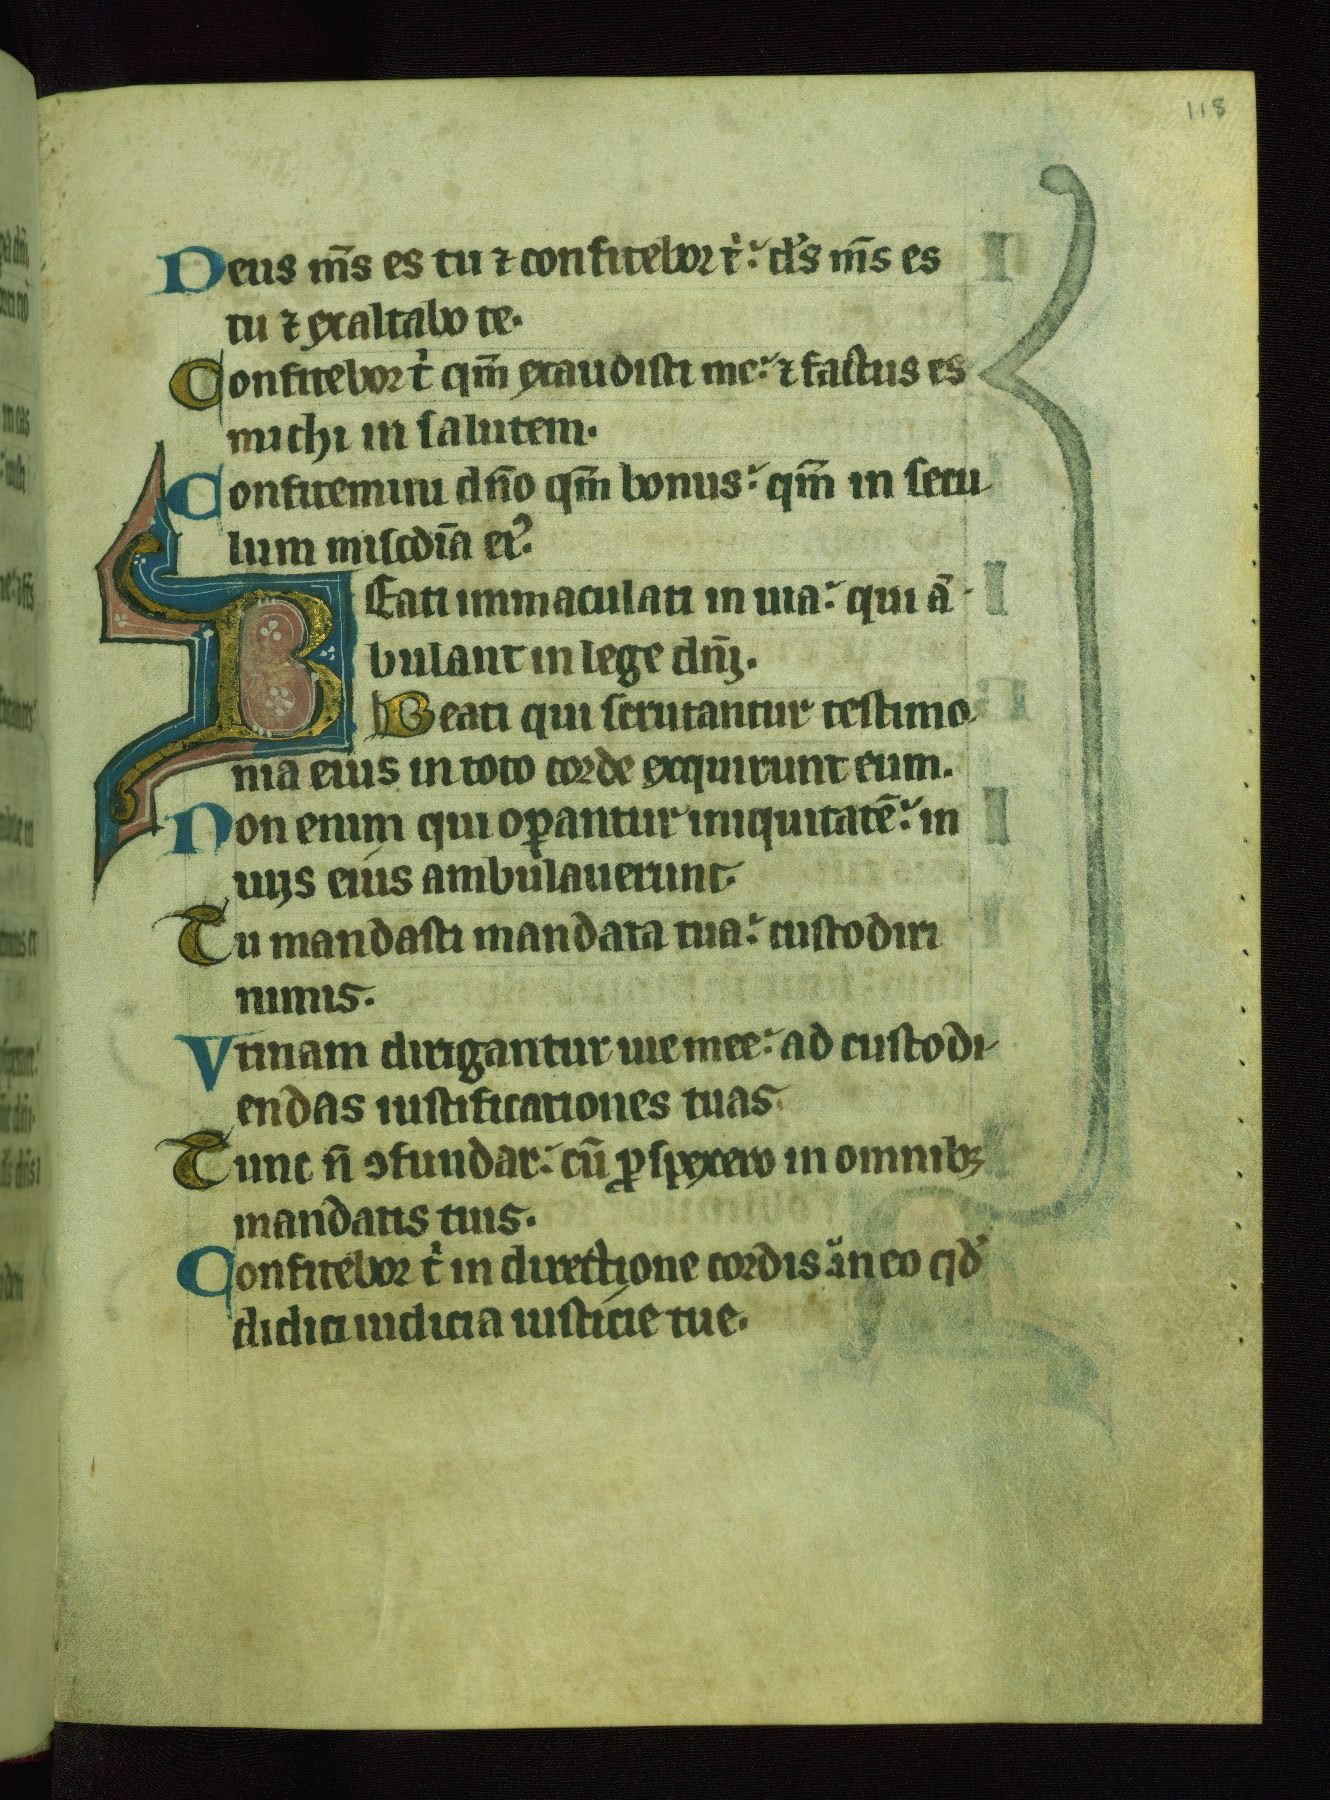 118
Deus m̄s es tu ⁊ confitebor t̉ : ds̉ m̄s es
tu ⁊ exaltabo te.
Confitebor t̉ qm̄ exaudisti me : ⁊ factus es
michi in salutem.
Confitemini dn̄o qm̄ bonus : qm̄ in secu
lum misc̄dia ei᾿.
BEati immaculati in uia : qui ā
bulant in lege dn̄j.
Beati qui scrutantur testimo
nia eius in toto corde exquirunt eum.
Non enim qui oꝑantur iniquitatē : in
uijs eius ambulauerunt.
Tu mandasti mandata tua : custodiri
nimis.
Vtinam dirigantur uie mee : ad custodi
endas iustificationes tuas
Tunc n̄ ꝯfundar : cū ꝑspexero in omnibꝫ
mandatis tuis.
Confitebor t̉ in directione cordis : in eo qd̉
didici iudicia iusticie tue.